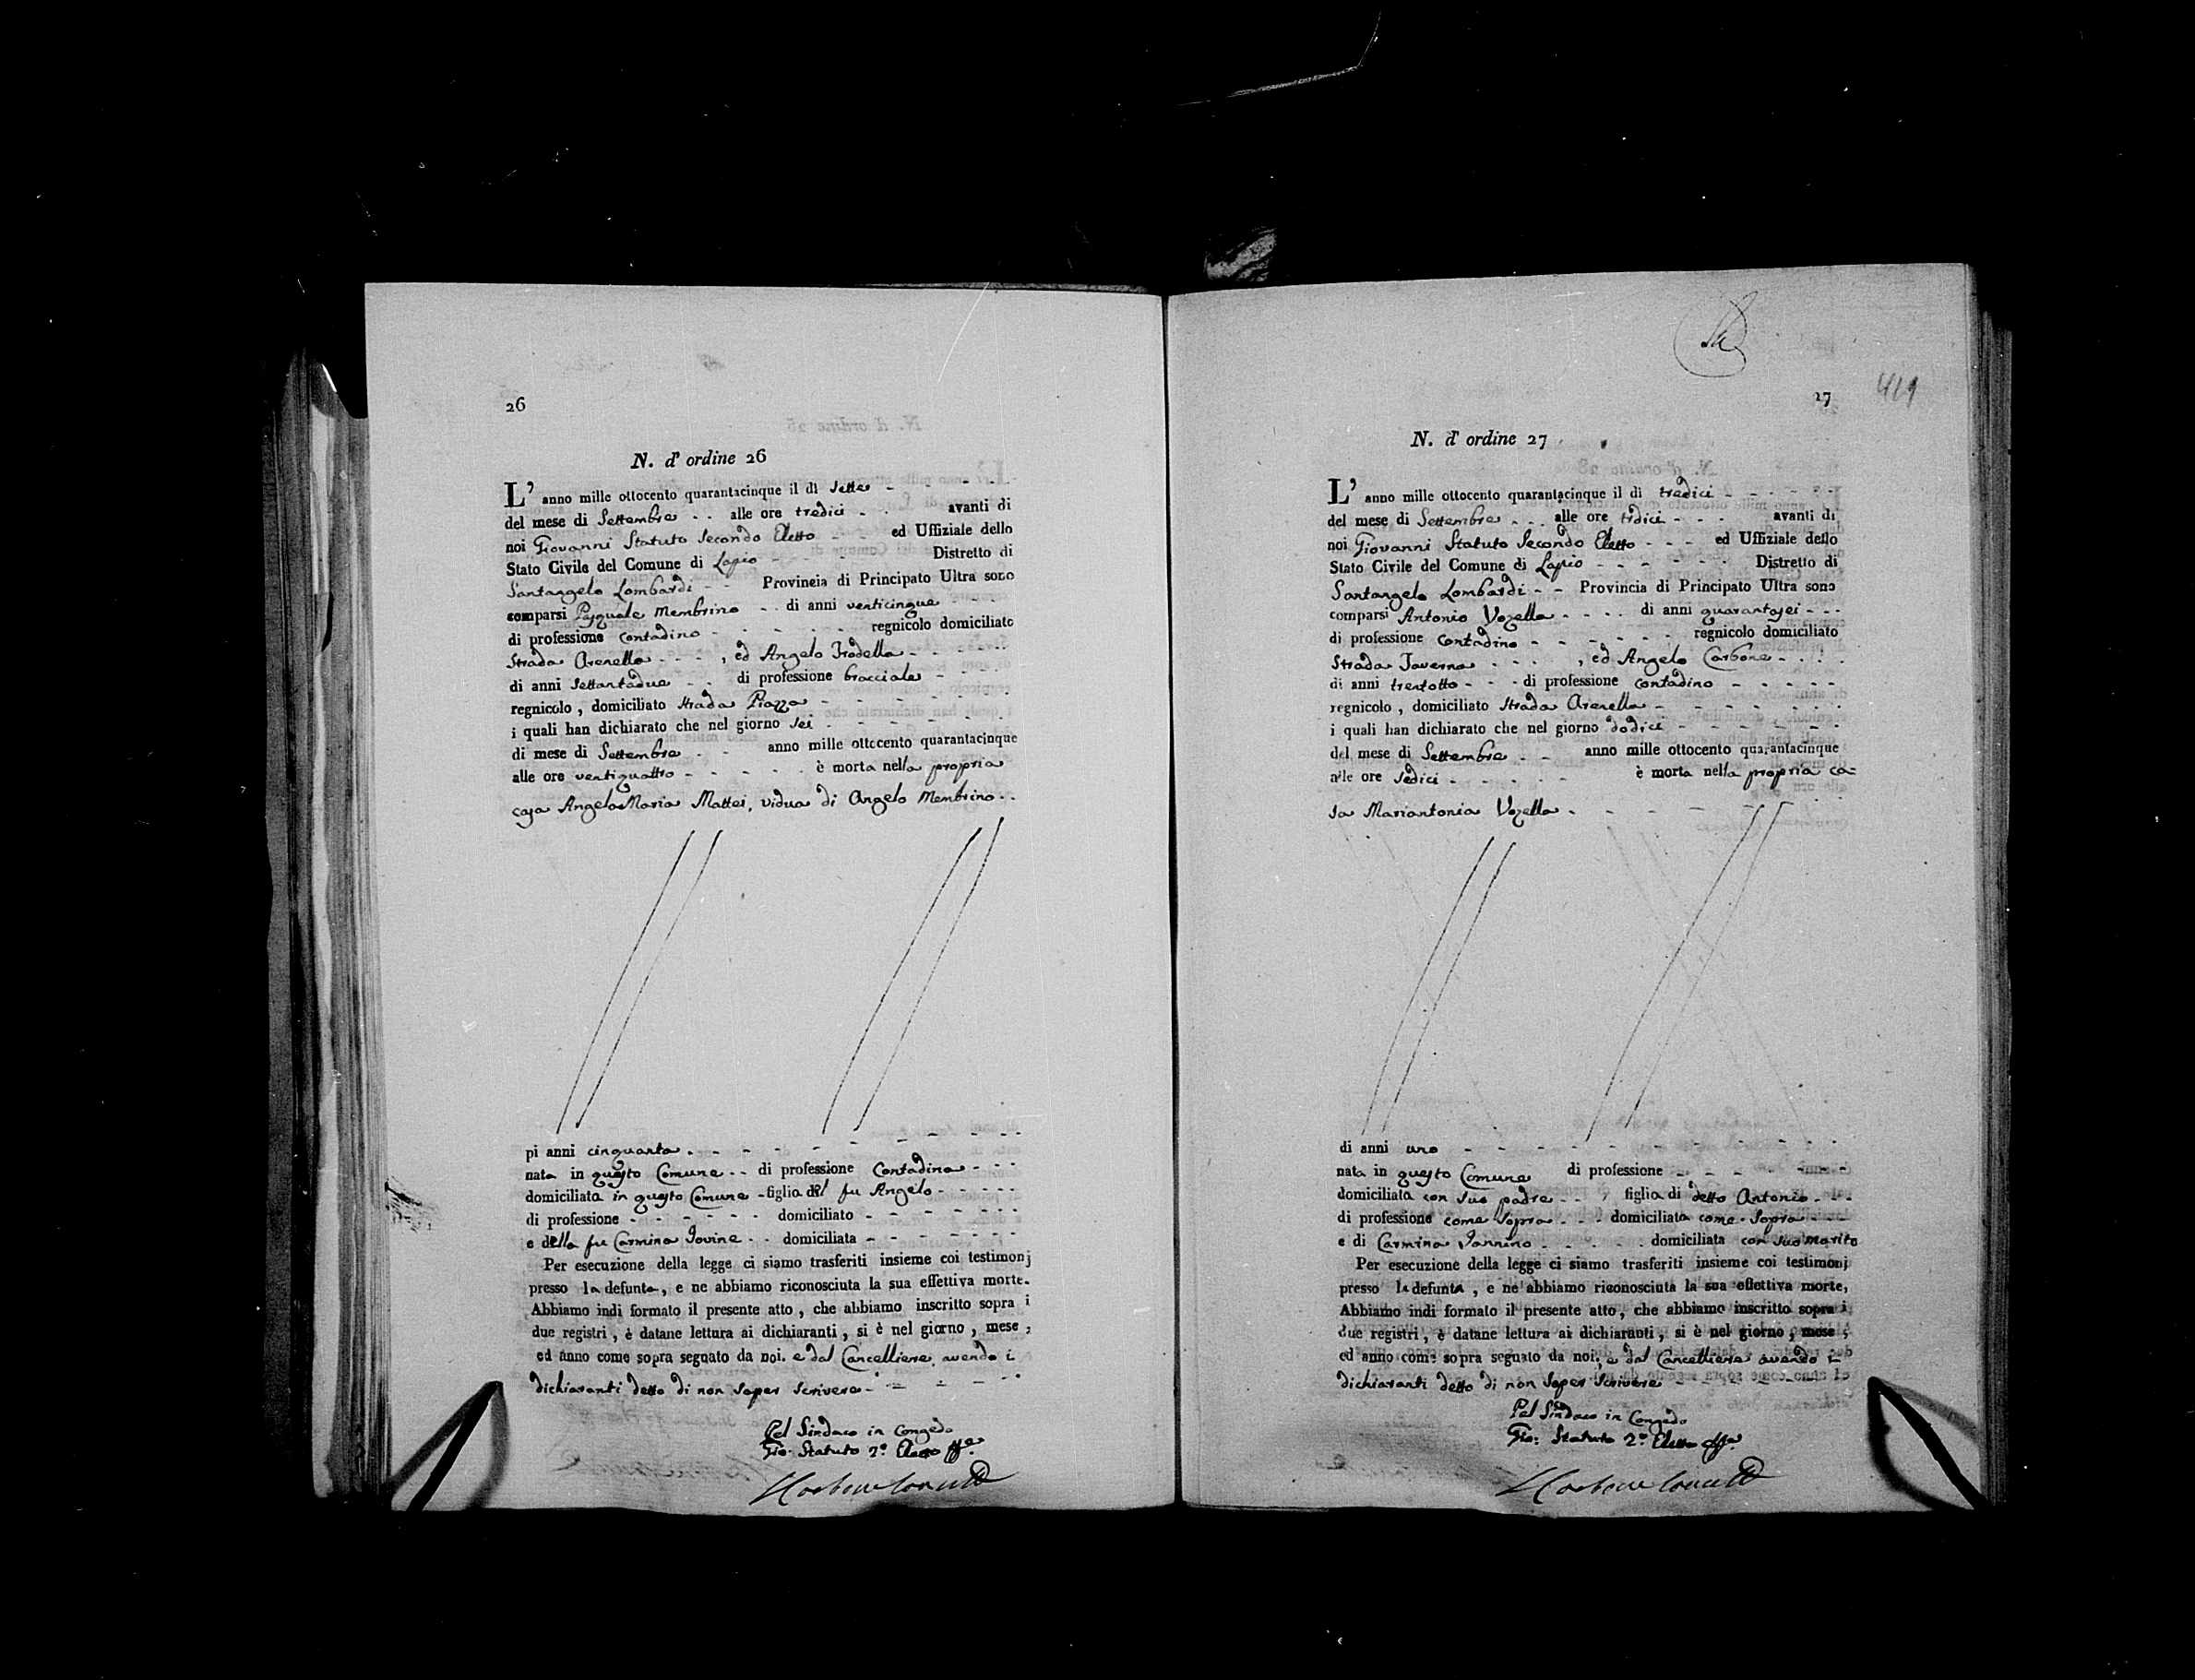 26
N. d' ordine 26
L' anno mille ottocento quarantacinque il dì Sette
del mese di Settembre alle ore tredici avanti di
noi Giovanni Statuto Secondo Eletto ed Uffiziale dello
Stato Civile del Comune di Lapio Distretto di
Santangelo Lombardi Provincia di Principato Ultra sono
comparsi Pasquale Membrino di anni venticinque
di professione Contadino regnicolo domiciliato
Strada Arenella , ed Angelo Trodella
di anni Settantadue di professione bracciale
regnicolo , domiciliato Strada Piazza
i quali han dichiarato che nel giorno Sei
di mese di Settembre anno mille ottocento quarantacinque
alle ore ventiquattro è morta nella propria
casa Angelo Maria Mattei, vidua di Angelo Membrino
pi anni cinquanta
nata in questo Comune di professione Contadina
domiciliata in questo Comune figlia del fu Angelo
di professione domiciliato
e della fu Carmina Iovine domiciliata
Per esecuzione della legge ci siamo trasferiti insieme coi testimonj
presso la defunta, e ne abbiamo riconosciuta la sua effettiva morte.
Abbiamo indi formato il presente atto , che abbiamo inscritto sopra i
due registri , è datane lettura ai dichiaranti , si è nel giorno , mese ,
ed anno come sopra segnato da noi. e dal Cancelliere avendo i
dichiaranti detto di non saper scrivere
Pel Sindaco in Congedo
Gio: Statuto 2º Eletto
27
419
N. d' ordine 27
L' anno mille ottocento quarantacinque il dì tredici
del mese di Settembre alle ore tridici avanti di
noi Giovanni Statuto Secondo Eletto ed Uffiziale dello
Stato Civile del Comune di Lapio Distretto di
Santangelo Lombardi Provincia di Principato Ultra sono
comparsi Antonio Vozella di anni quarantasei
di professione Contadino regnicolo domiciliato
Strada Taverna , ed Angelo Carbone
di anni trentotto di professione contadino
regnicolo , domiciliato Strada Arenella
i quali han dichiarato che nel giorno dodici
del mese di Settembre anno mille ottocento quarantacinque
alle ore Sedici è morta nella propria ca=
sa Mariantonia Vozella
di anni uno
nata in questo Comune di professione
domiciliata con suo padre figlia di detto Antonio
di professione come Sopra domiciliata come Sopra
e di Carmina Iannino domiciliata con suo marito
Per esecuzione della legge ci siamo trasferiti insieme coi testimonj
presso la defunta , e ne abbiamo riconosciuta la sua effettiva morte,
Abbiamo indi formato il presente atto, che abbiamo inscritto sopra i
due registri , è datane lettura ai dichiaranti , si è nel giorno , mese ,
ed anno come sopra segnato da noi, e dal Cancelliere avendo i
dichiaranti detto di non saper scrivere
Pel Sindaco in Congedo
Gio: Statuto 2º Eletto